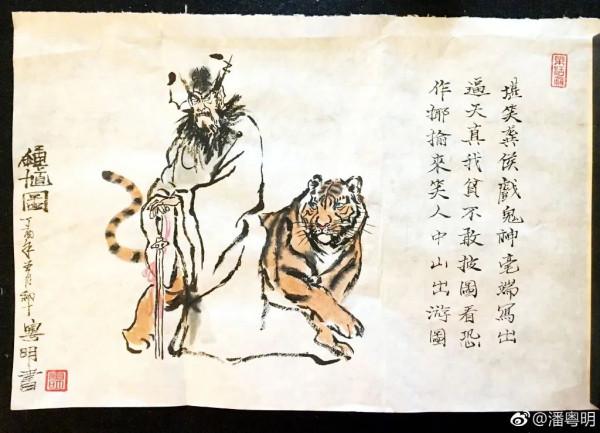 堪笑龔侯戲鬼神毫端寫出
逼天真我貧不敢披圖看恐
作揶揄來笑人中山出游圖
鍾馗圖
丁酉年 月 粵明書
@潘粤明